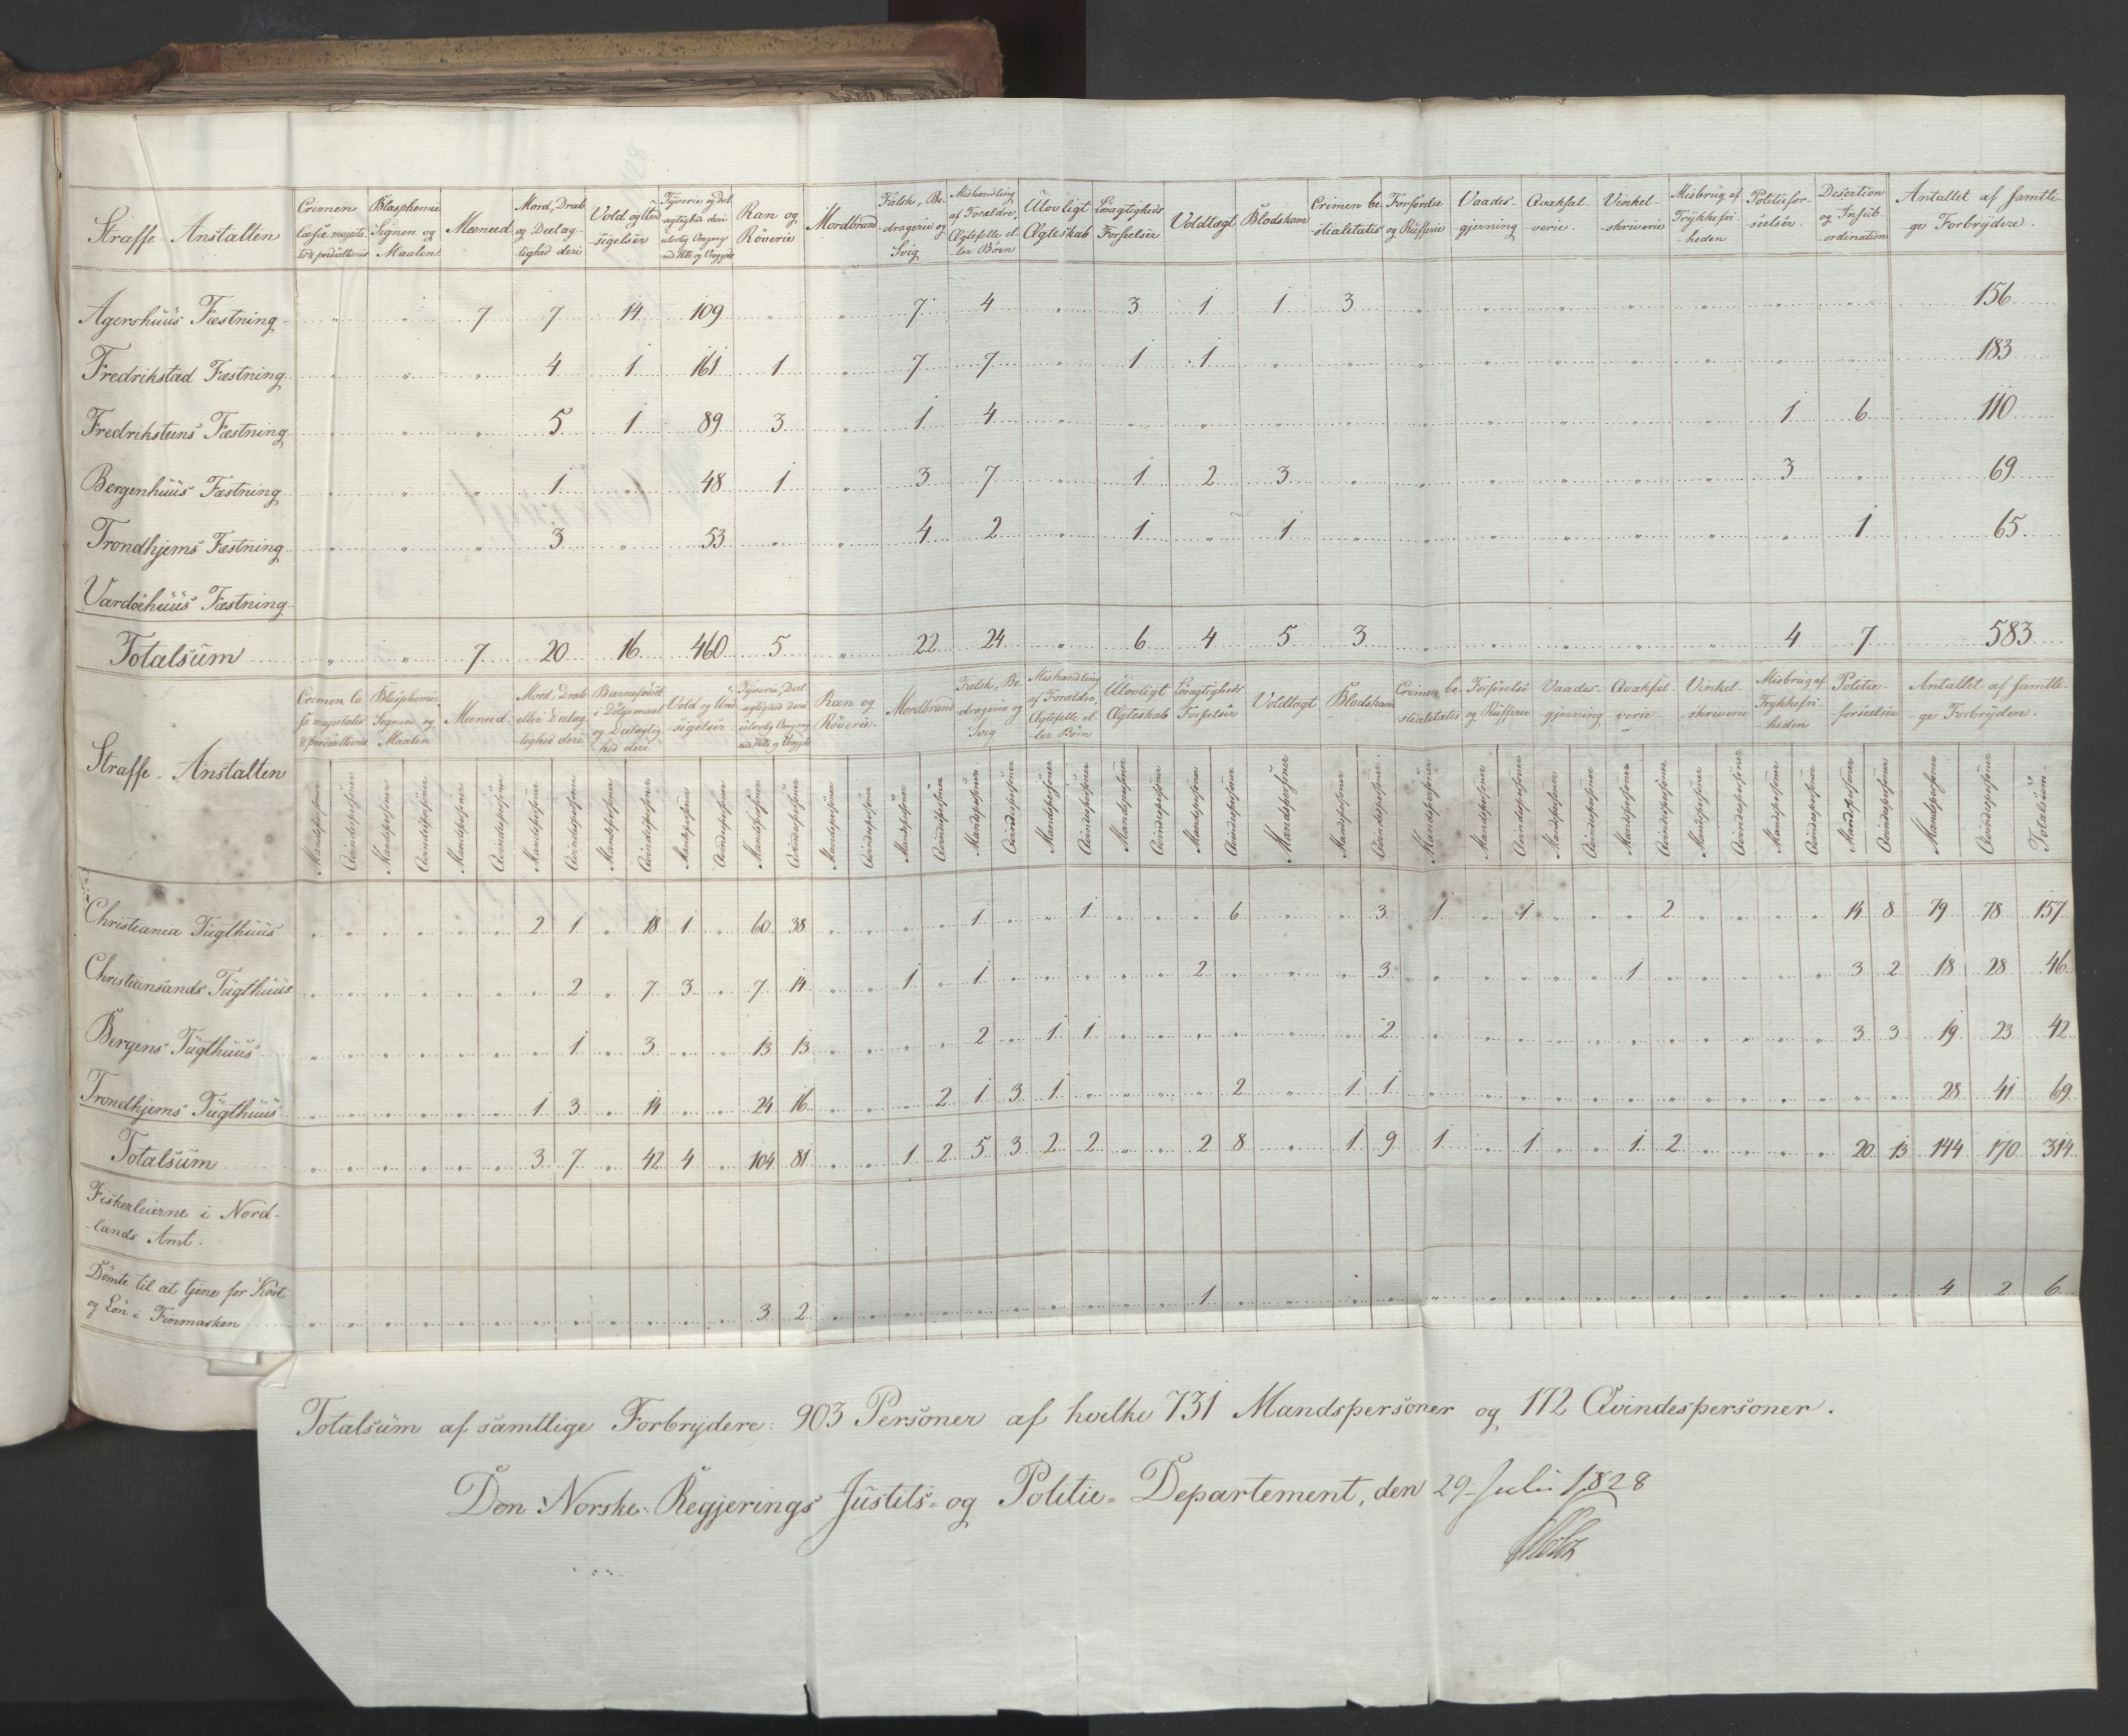 Straffe Anstalten | Crimen læsæ majestatis & perduellionis | Blasphemie Signen og Maalen | Meeneed | Mord, Drab og Deelagtighed deri | Vold og Undsigelser | Tyverie og Deelagtighed deri | Ran og Röverie | Mordbrand | Falsk, Bedragerie og Svig | Mishandling af Forældre, Ægtefælle eller Børn | Ulovligt Ægteskab | Løsagtigheds Forseelser | Voldtægt | Blodskam | Crimen bestialitatis | Forførelse og Rüfferie | Vaadesgjerning | Qvaksalverie | Vinkelskriverie | Misbrug af Trykkefriheden | Politieforseelser | Desertion og Insubordination | Antallet af samtlige Forbrydere
Agershuus Fæstning " " 7 7 14 109 " " 7 4 " 3 1 1 3 " " " " " " " 156
Fredrikstad Fæstning " " " 4 1 161 1 " 7 7 " 1 1 " " " " " " " " " 183
Fredriksteens Fæstning " " " 5 1 89 3 " 1 4 " " " " " " " " " " 1 6 110
Bergenhuus Fæstning " " " 1 " 48 1 " 3 7 " 1 2 3 " " " " " " 3 " 69
Trondhjems Fæstning " " " 3 " 53 " " 4 2 " 1 " 1 " " " " " " " 1 65
Vardöehuus Fæstning
Totalsum " " 7 20 16 460 5 " 22 24 " 6 4 5 3 " " " " " 4 7 583
Straffe-Anstalten | Crimen læsæ majestatis & perduellionis | Blasphemie, Signen og Maalen | Meeneed | Mord, Drab eller Deelagtighed deri | Barnefødsel i Dölgsmaal og Deelagtighed deri | Vold og Undsigelser | Tyverie, Deelagtighed deri | Ran og Röverie | Mordbrand | Falsk, Bedragerie og Svig | Mishandling af Forældre, Ægtefælle eller Børn | Ulovligt Ægteskab | Løsagtigheds Forseelser | Voldtægt | Blodskam | Crimen bestialitatis | Forførelse og Rüfferie | Vaadesgjerning | Qvaksalverie | Vinkelskriverie | Misbrug af Trykkefriheden | Politieforseelser | Antallet af samtlige Forbrydere
Mandspersoner Qvindespersoner Mandspersoner Qvindespersoner Mandspersoner Qvindespersoner Mandspersoner Qvindespersoner Mandspersoner Qvindespersoner Mandspersoner Qvindespersoner Mandspersoner Qvindespersoner Mandspersoner Qvindespersoner Mandspersoner Qvindespersoner Mandspersoner Qvindespersoner Mandspersoner Qvindespersoner Mandspersoner Qvindespersoner Mandspersoner Qvindespersoner Mandspersoner Mandspersoner Qvindespersoner Mandspersoner Mandspersoner Qvindespersoner Mandspersoner Qvindespersoner Mandspersoner Qvindespersoner Mandspersoner Qvindespersoner Mandspersoner Qvindespersoner Mandspersoner Qvindespersoner Mandspersoner Qvindespersoner Totalsum
Christiania Tugthuus 2 1 18 1 60 38 1 1 6 3 1 1 2 14 8 79 78 157
Christiansands Tugthuus 2 7 3 7 14 1 1 2 3 1 3 2 18 28 46
Bergens Tugthuus 1 3 13 13 2 1 1 2 3 3 19 23 42
Trondhjems Tugthuus 1 3 14 24 16 2 1 3 1 2 1 1 28 41 69
Totalsum 3 7 42 4 104 81 1 2 5 3 2 2 2 8 1 9 1 1 1 2 20 13 144 170 314
Fiskerleierne i Nord-
-lands Amt.
Dömte til at tjene for Kost
og Lön i Finmarken 3 2 1 4 2 6
Totalsum af samtlige Forbrydere: 903 Personer af hvilke 731 Mandspersoner og 172 Qvindespersoner.
Den Norske Regjerings Justits- og Politie-Departement, den 29 Juli 1828